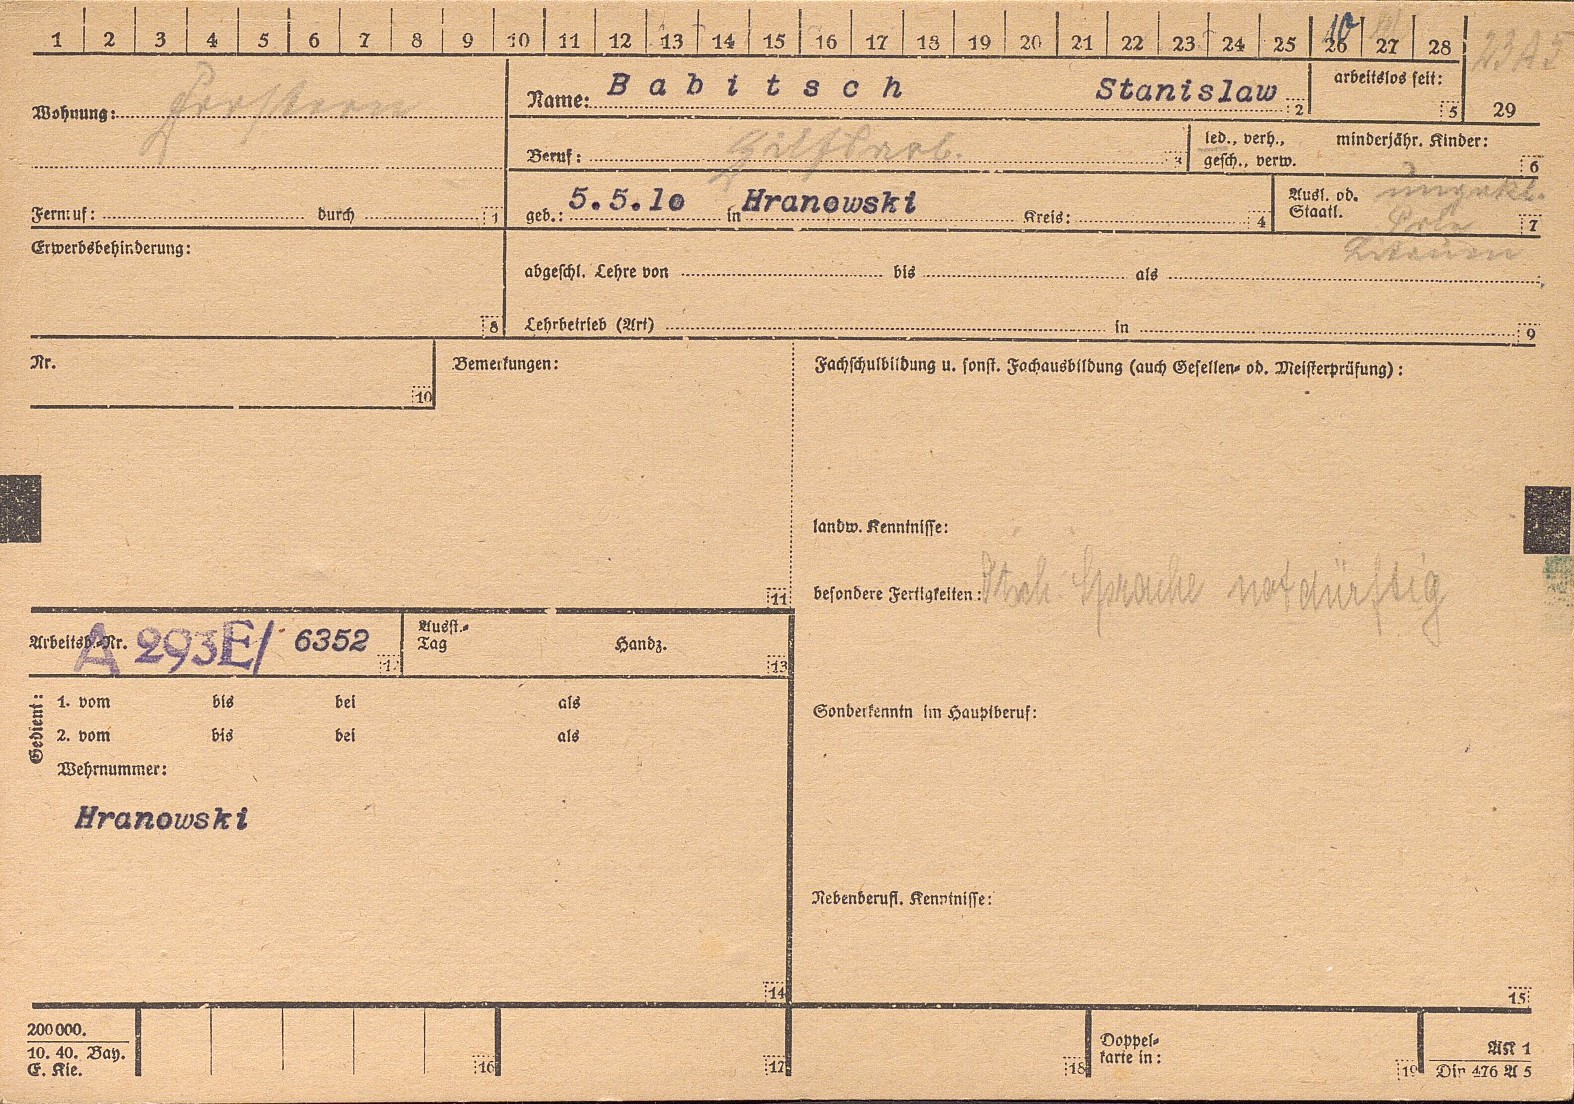 1 2 3 4 5 6 7 8 9 10 11 12 13 14 15 16 17 18 19 20 21 22 23 24 25 26 27 28
10
23 A 5
Wohnung: Forstern
Name: Babitsch Stanislaw 2
arbeitslos seit: 5
29
Beruf: Hilfsarb. 3
led., verh., gesch., verw.
minderjähr. Kinder: 6
Fernruf: durch 1
geb.: 5.5.10 in Hranowski Kreis: 4
Ausl. od. Staatl. ungekl. 7
Pole
Litauen
Erwerbsbehinderung: 8
abgeschl. Lehre von bis als
Lehrbetrieb (Art) in 9
Nr. 10
Bemerkungen: 11
Fachschulbildung u. sonst. Fachausbildung (auch Gesellen- od. Meisterprüfung):
landw. Kenntnisse:
besondere Fertigkeiten: Dtsch. Sprache notdürftig
Arbeitsb.-Nr. A 293E/ 6352 12
Ausst.-Tag Handz. 13
Gedient:
1. vom bis bei als
2. vom bis bei als
Wehrnummer:
Hranowski
14
Sonderkenntn im Hauptberuf:
Nebenberufl. Kenntnisse:
15
200000.
10. 40. Bay.
E. Kie.
16 17 18
Doppelkarte in: 19
AK 1
Din 476 A 5